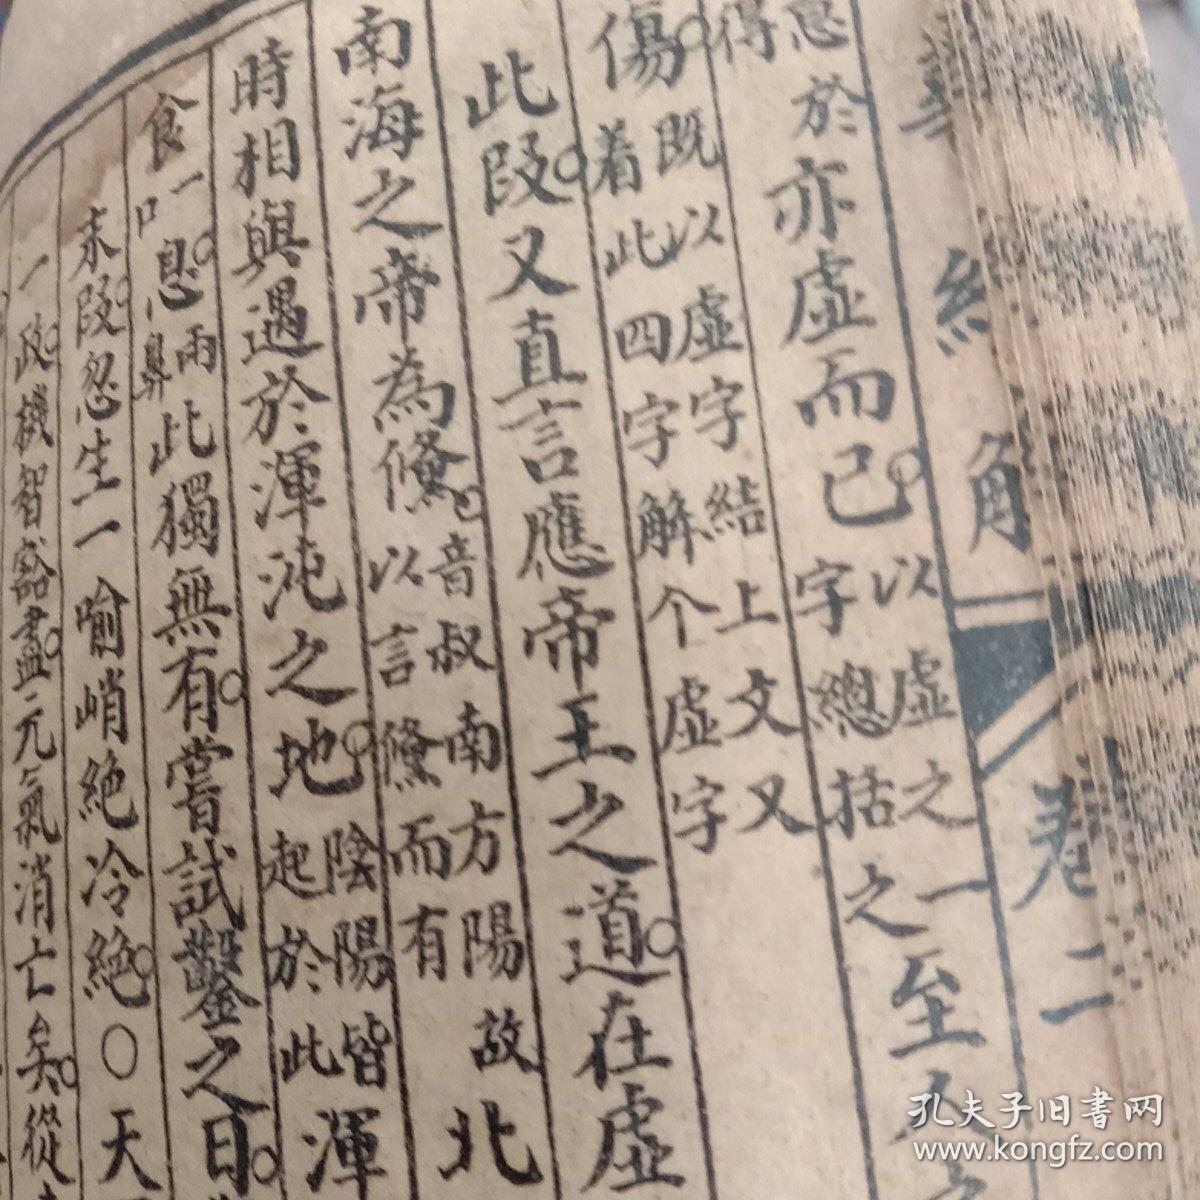 華經解 卷二
息於
得
亦虛而已。以虛之一
字總括之
至人
傷。既以虛字結上文又
着此四字解个虛字
此段。又直言應帝王之道。在虛
南海之帝為儵。音叔南方陽故
以言儵而有
北
時相與遇於渾沌之地。陰陽皆
起於此
渾
食一口息。兩鼻此獨無有。嘗試鑿之。日
末段。忽生一喻峭絕冷絕。〇天
機智豁盡。元氣消亡矣。從
孔夫子旧書网
www.kongfz.com